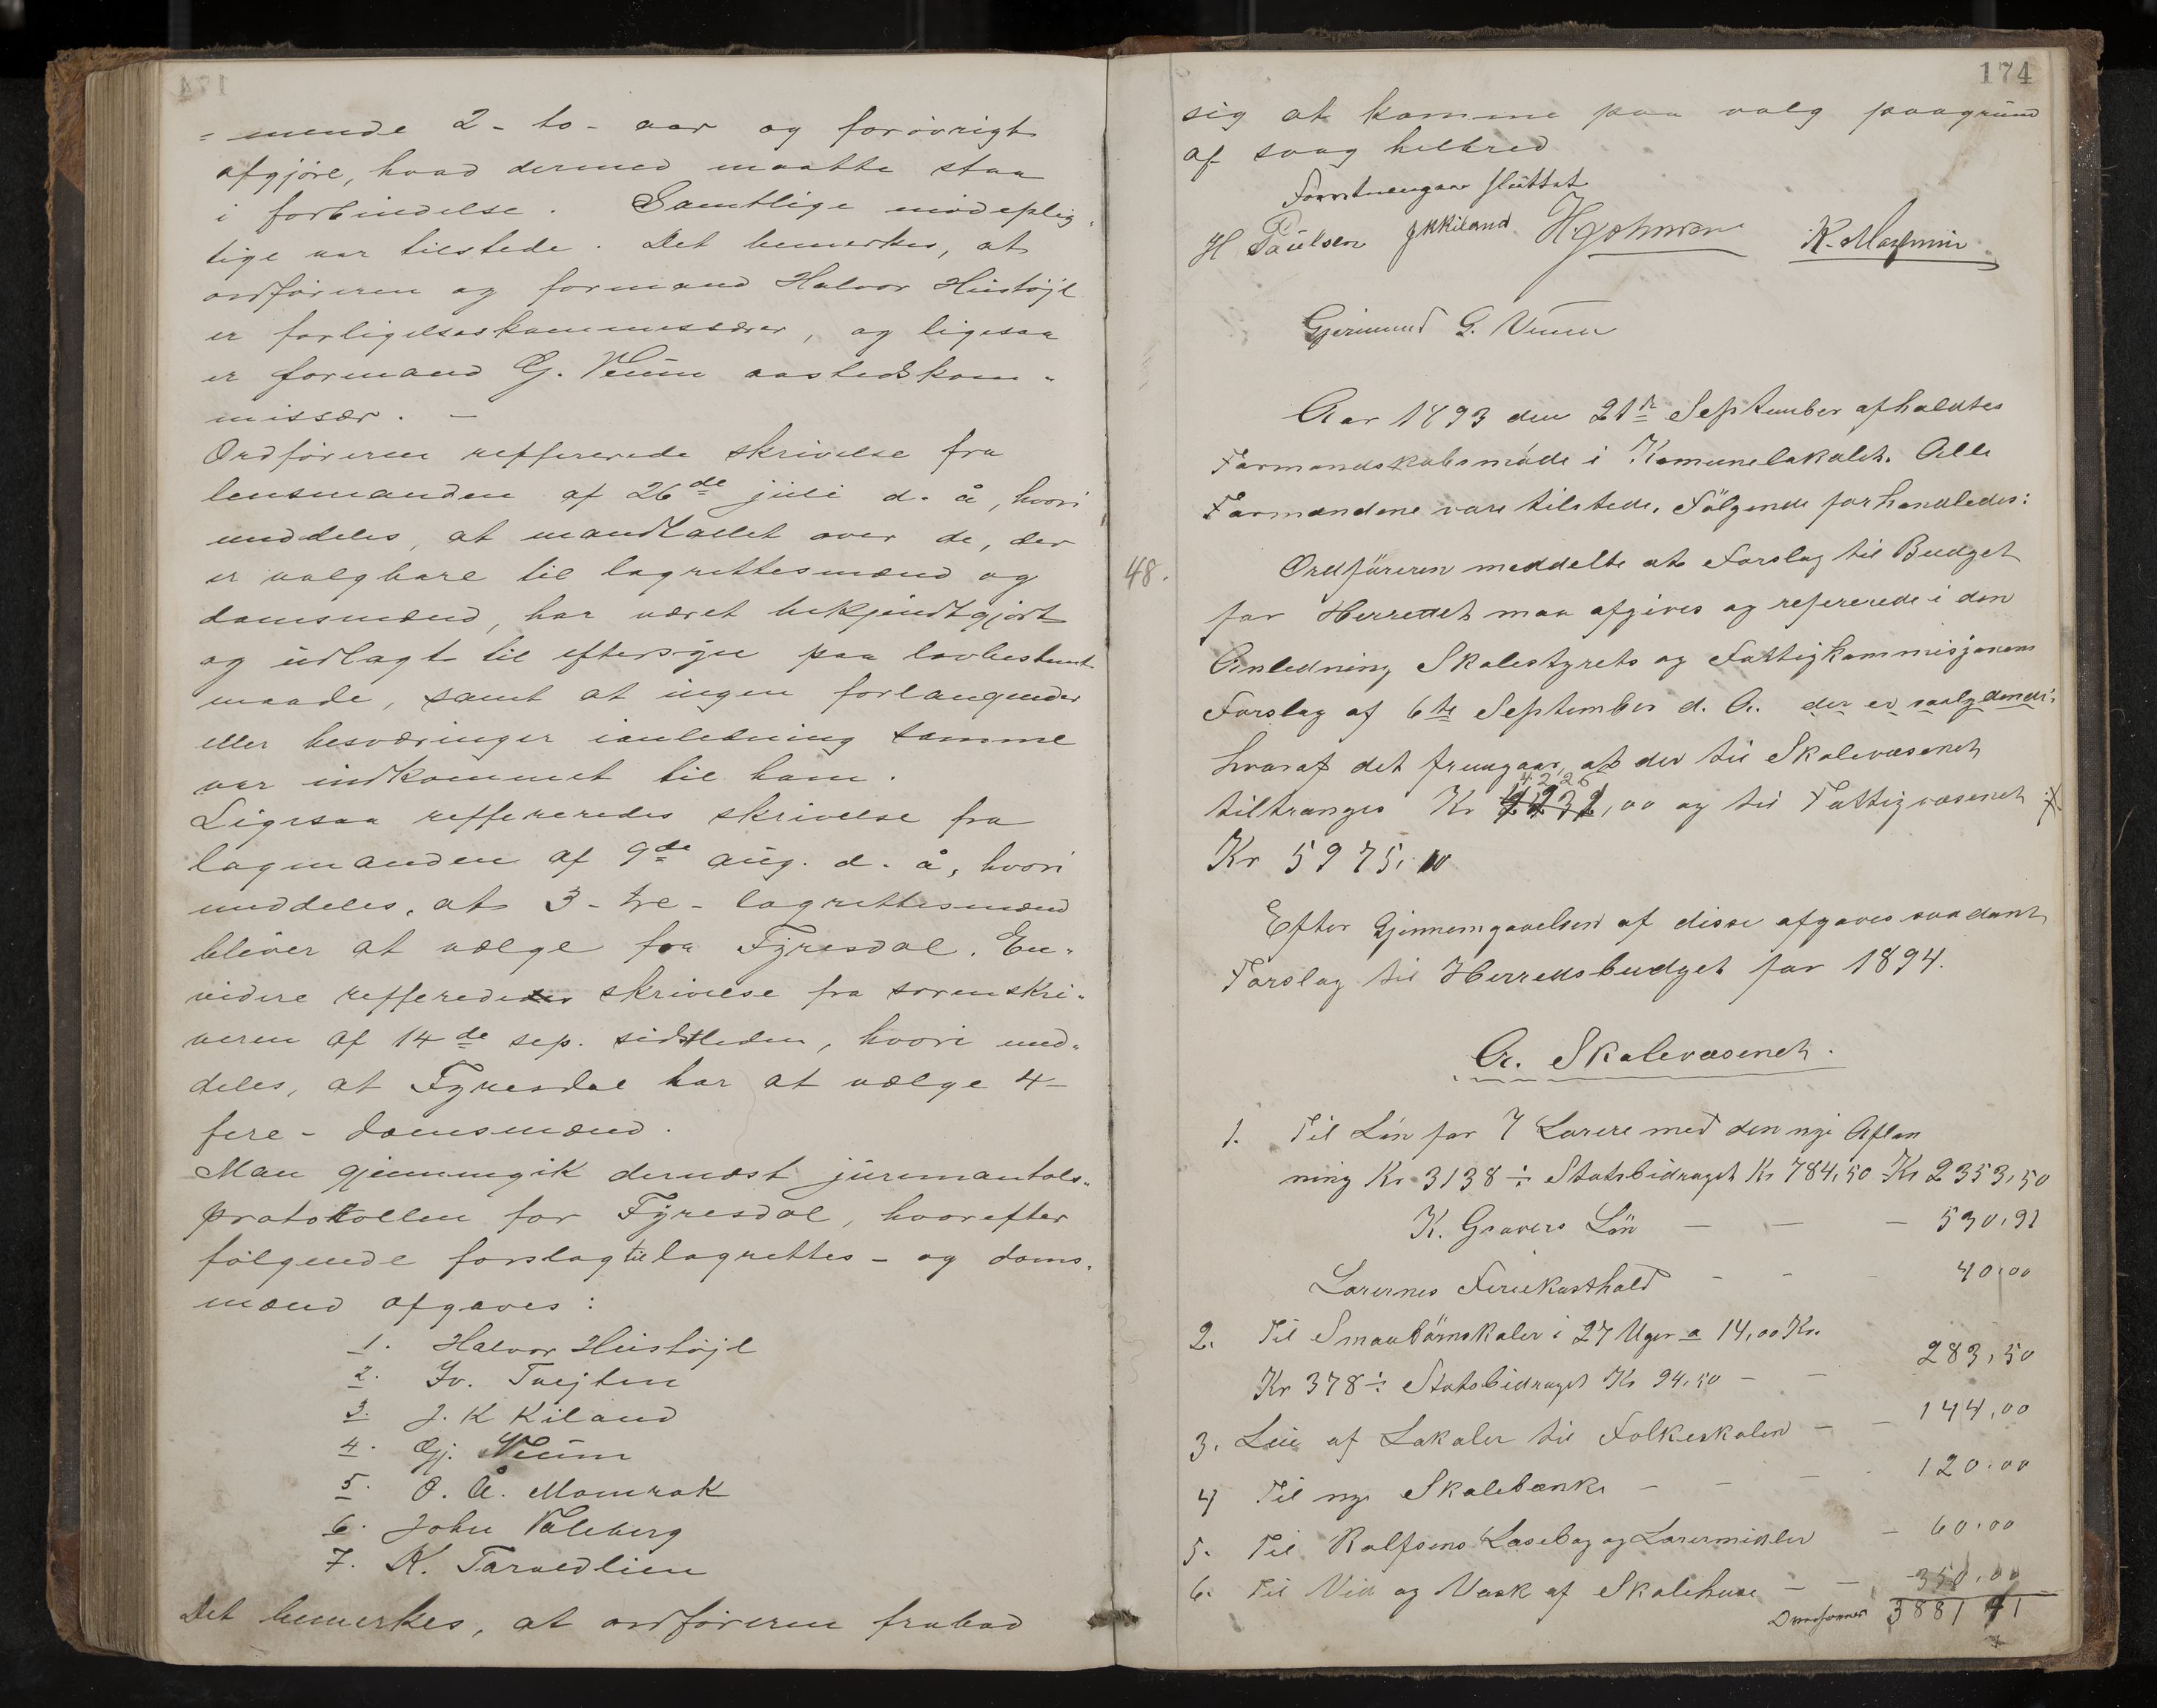 = mende 2 - to - aar og forövrigt
afgjöre, hvad dermed maatte staa
i forbindelse. Samtlige mödeplig-
tige var tilstede. Det bemerkes, at
ordföreren og formand Halvor Hüstöjl
er forligelseskommissærer, og ligesaa
er formand G. Veum aastedskom-
missær. —
Ordföreren reffererede skrivelse fra
lensmanden af 26de juli d. å, hvori
meddeles, at mandtallet over de, der
er valgbare til lagrettesmænd og
domsmænd, har været bekjendtgjort
og udlagt til eftersyn paa lovbestemt
maade, samt at ingen forlangender
eller besværinger ianledning samme
var indkommet til ham.
Ligesaa reffereredes skrivelse fra
lagmanden af 9de aug. d. å, hvori
meddeles, at 3 - tre - lagrettesmænd
bliver at vælge fra Fyresdal. En-
videre refferedes skrivelse fra sorenskri-
veren af 14de sep. sidstleden, hvori med-
deles, at Fyresdal har at vælge 4 -
fire - domsmænd.
Man gjennemgik dernæst jurymantals-
protokollen for Fyresdal, hvorefter
følgende forslag til lagrettes - og doms-
mænd afgaves:
1. Halvor Hüstöjl
2. Jv. Tvejten
3. J. K Kiland
4. Gj. Veum
5. O. Å. Momrak
6. John Valeberg
7. K. Tarvedlien
Det bemerkes, at ordföreren frabad
174
sig at komme paa valg paagrund
af svag helbred
Forretningen sluttet
H Paulsen JKKiland HJohnsen K. Mazemin
Gjermund G. Veum
Aar 1893 den 21de September afholdtes
Formandskabsmöde i Komunelokalet. Alle
Formændene vare tilstede. Fölgende forhandledes:
48. Ordföreren meddelte at Forslag til Budget
for Herredet maa afgives og refererede i den
Anledning Skolestyrets og Fattigkommisjonens
Forslag af 6te September d. A. der er saalydende:
hvoraf det fremgaar, at der til Skolevæsenet
4226
tiltrænges Kr ,00 og til Fattigvæsenet
Kr 5975,00
Efter Gjennemgaaelsen af disse afgaves saadant
Forslag til Herredsbudget for 1894.
A. Skolevæsenet.
1. Til Lön for 7 Lærere med den nye Aflön
ning Kr 3138 ÷ Statsbidraget Kr 784,50 Kr 2353,50
K. Gravers Lön — — — 530,91
Lærernes Feriekosthold - - - 40,00
2. Til Smaabörnskoler i 27 Uger a 14,00 Kr.
Kr 378 ÷ Statsbidraget Kr 94,50 — — 283,50
3. Leie af Lokaler til Folkeskolen — — 144,00
4 Til nye Skolebænke — — — 120,00
5. Til Rolfsens Læsebog og Læremidler — 60,00
6. Til Ved og Vask af Skolehuse — — 350,00
Overföres 3881 91